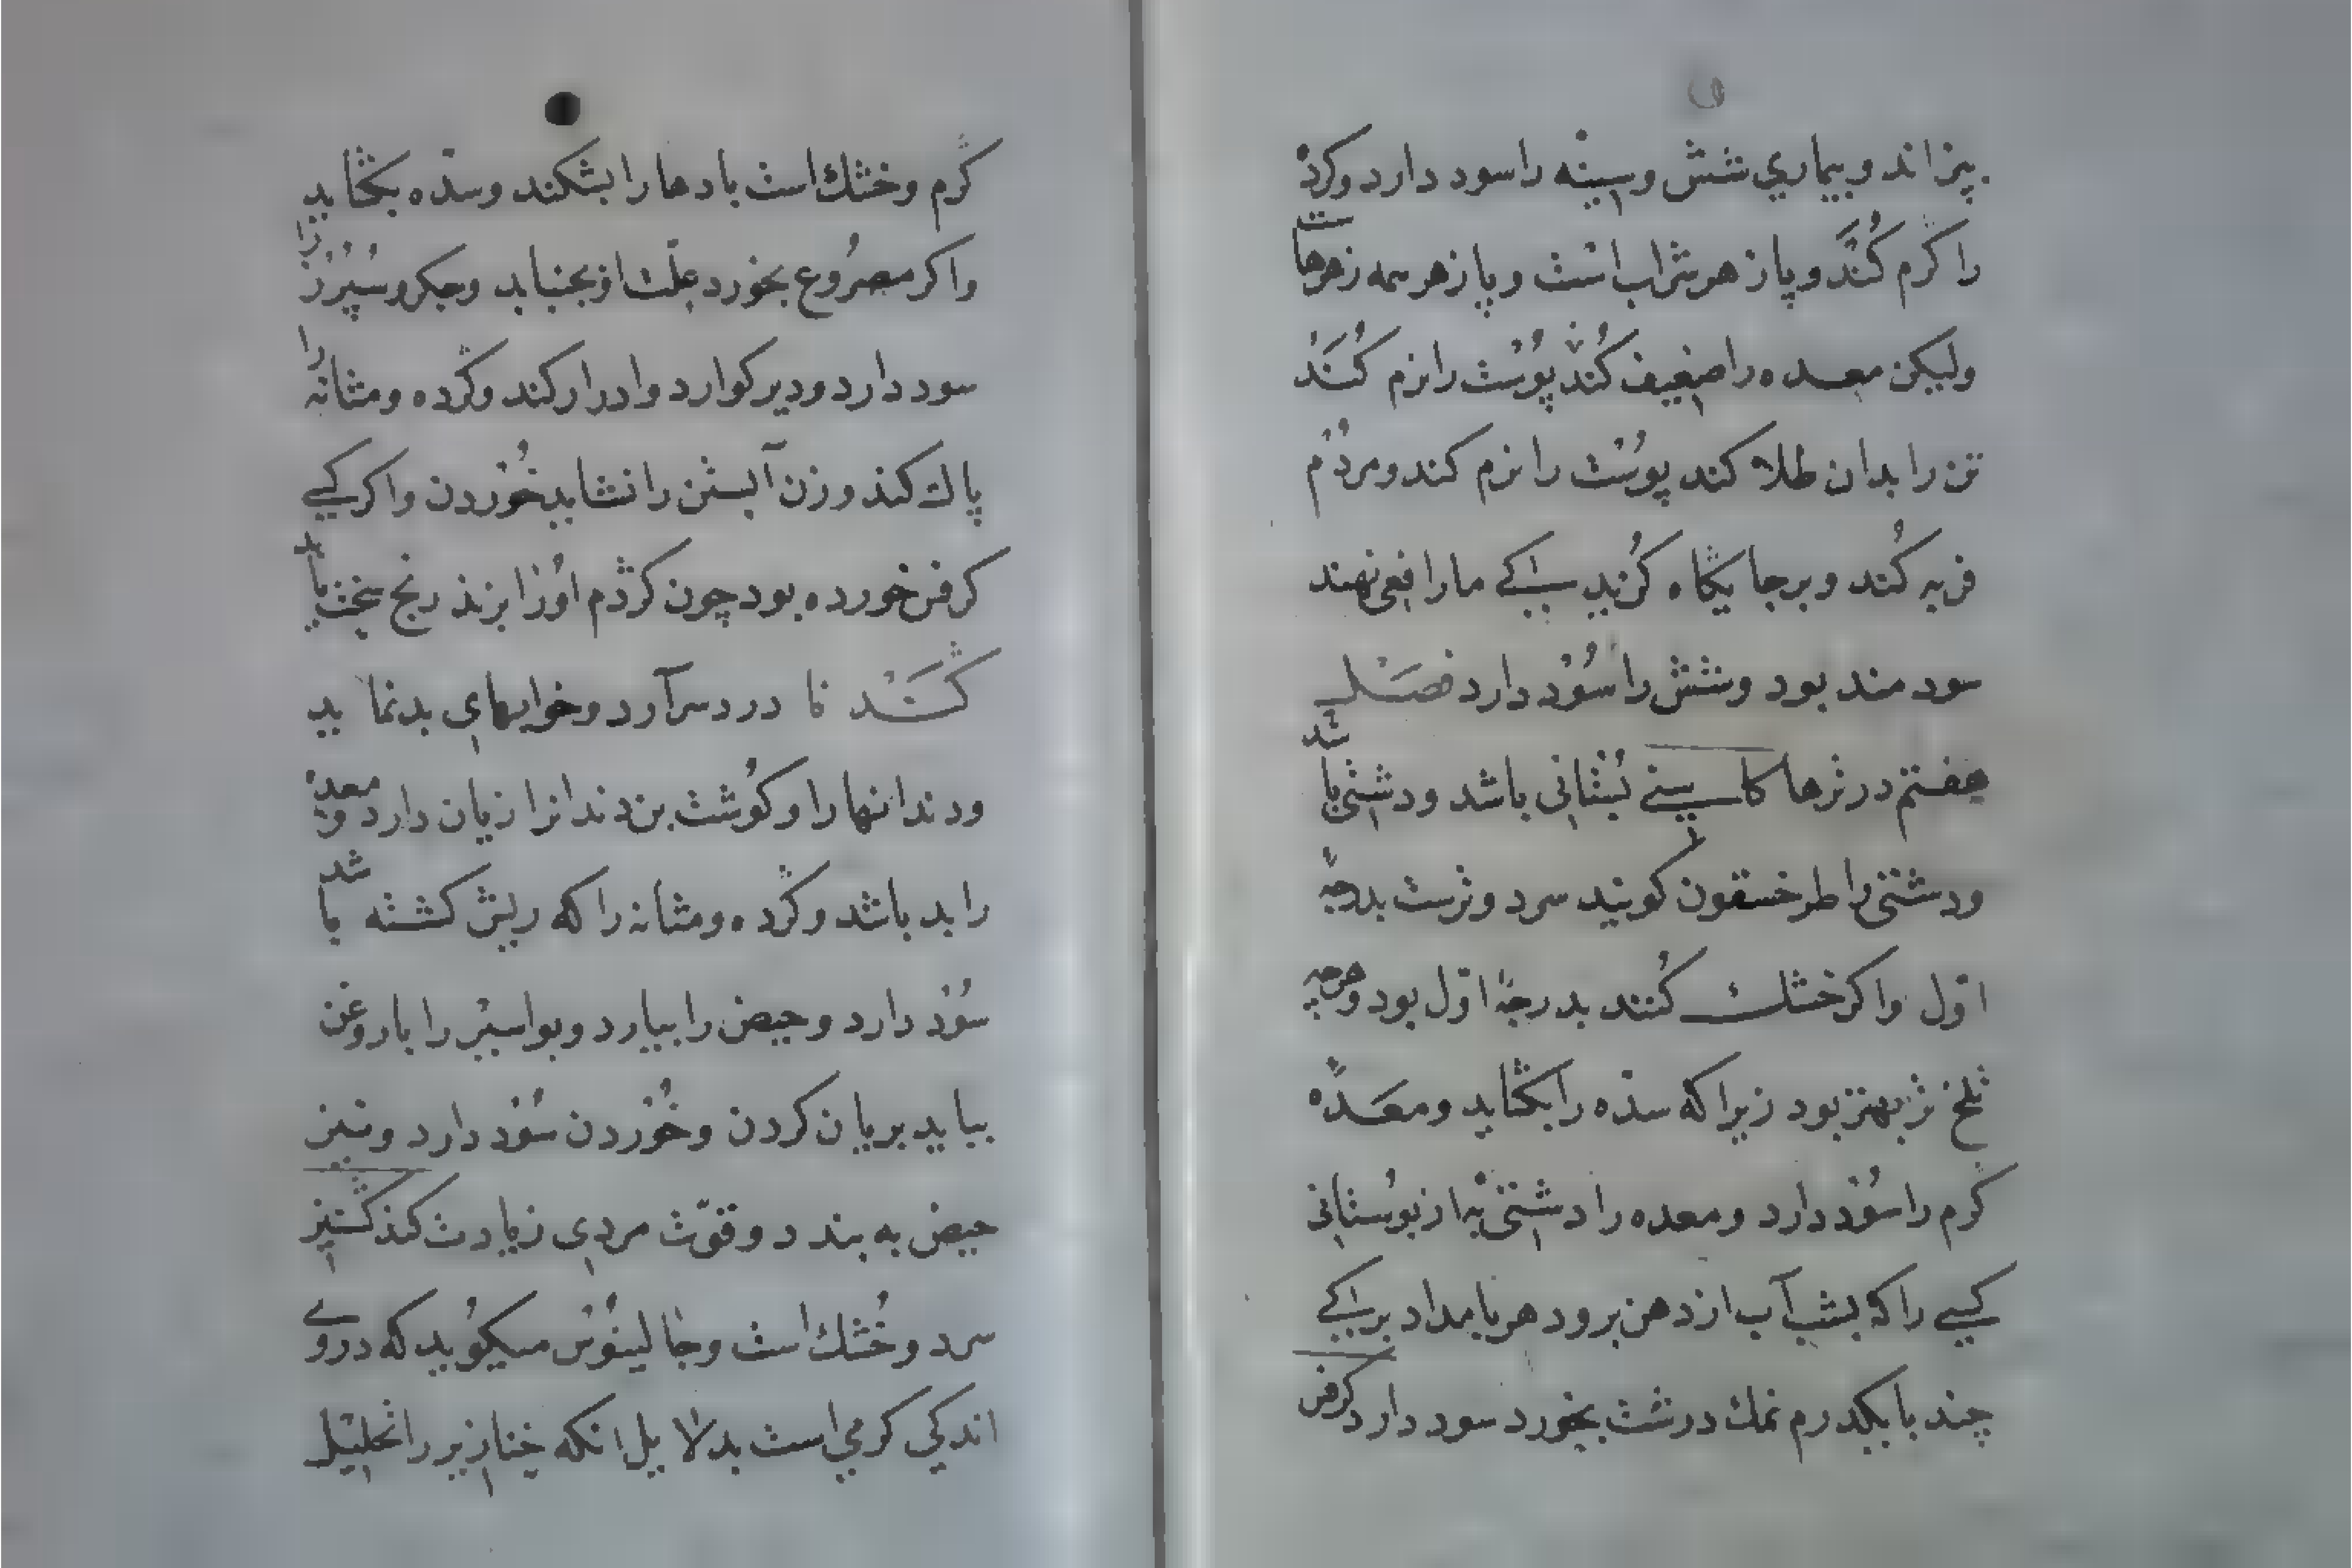 بپزاند و بیماري شش و سینه را سود دارد و کرده
را کرم کُند و پازهر شراب است و پازهر همه زهرهاست
ولیکن معده را ضعیف کُند پوُست را نرم کُنَد
تن را بدان طلا کند پوُست را نرم کند و مردُم
فربه کُند و بر جایکاه کزند کی مار افعی نهند
سودمند بود و شش را سُوُد دارد فصَل
هفتم در ترها کاسنی بُستانی باشد و دشتی باشد
و دشتی را طرخسقون کویند سرد و ترست بدرجهٔ
اوّل و اکر خشك کُنند بدرجهٔ اوّل بود و هرچه
تلخ تر بهتر بود زیرا که سدّه را بکشاید و معَدهٔ
کرم را سُوُد دارد و معده را دشتی به از بوُستانی
کسی را که بشب آب از دهن برود هر بامداد برکی
چند با یکدرم نمك درشت بخورد سود دارد کرفس
کرم و خشك است بادها را بشکند و سدّه بکشاید
و اکر مصرُوع بخورد علّت او بجنباند و جکر و سُپُرُز را
سود دارد و دیر کوارد و ادرار کند و کرده و مثانه را
پاك کند و زن آبستن را نشاید خُوُردن و اکر کسی
کرفس خورده بود چون کژدم اوُرا بزند رنج سخت باید
کشَد تا درد سر آرد و خوابهای بد نماید
و دندانها را و کوُشت بن دندانرا زیان دارد و معده
را بد باشد و کرده و مثانه را که ریش کشته باشد
سُوُد دارد و حیض را بیارد و بواسیر را با روغن
بباید بریان کردن و خُوُردن سُوُد دارد و نیز
حیض به بندد و قوّت مردی زیادت کند کشنیز
سرد و خُشك است و جالینوُس میکوُید که در وی
اندکی کرمی است بدلایل انکه خنازیر را تحلیل